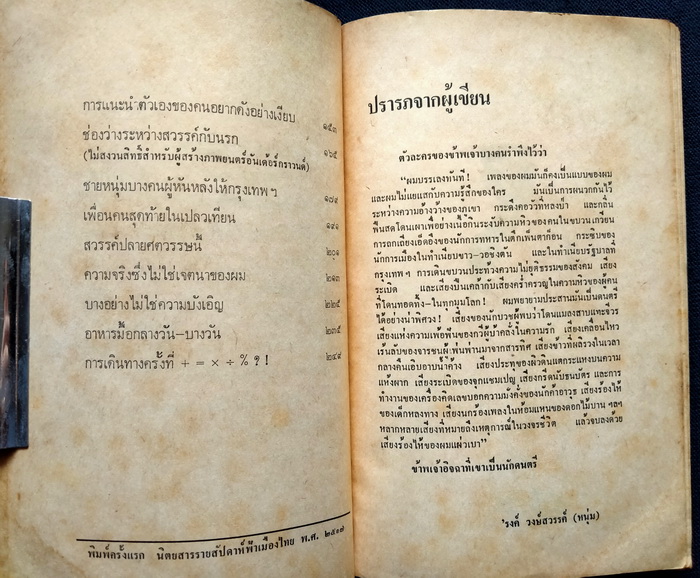 การแนะนำตัวเองของคนอยากดังอย่างเงียบ ๑๕๓
ช่องว่างระหว่างสวรรค์กับนรก ๑๖๕
(ไม่สงวนสิทธิ์สำหรับผู้สร้างภาพยนตร์อันเด้อร์กราวนด์)
ชายหนุ่มบางคนผู้หันหลังให้กรุงเทพฯ ๑๗๙
เพื่อนคนสุดท้ายในเปลวเทียน ๑๙๑
สวรรค์ปลายศตวรรษนี้ ๒๐๑
ความจริงซึ่งไม่ใช่เจตนาของผม ๒๑๓
บางอย่างไม่ใช่ความบังเอิญ ๒๒๕
อาหารมื้อกลางวัน–บางวัน ๒๓๕
การเดินทางครั้งที่ + = × ÷ % ? ! ๒๔๙
พิมพ์ครั้งแรก นิตยสารรายสัปดาห์ฟ้าเมืองไทย พ.ศ. ๒๕๑๗
ปรารภจากผู้เขียน
ตัวละครของข้าพเจ้าบางคนรำพึงไว้ว่า
“ผมบรรเลงทันที! เพลงของผมมันก็คงเป็นแบบของผม
และผมไม่แยแสกับความรู้สึกของใคร มันเป็นการผนวกกันไว้
ระหว่างความอ้างว้างของภูเขา กระดึงคอวัวที่หลงป่า และกลิ่น
ฟืนสดโดนเผาเพื่อย่างเนื้อกินระงับความหิวของคนในขบวนเกวียน
การถกเถียงเอ็ดอึงของนักการทหารในตึกเพ็นตาก็อน กระซิบของ
นักการเมืองในทำเนียบขาว–วอชิงตัน และในทำเนียบรัฐบาลที่
กรุงเทพฯ การเดินขบวนประท้วงความไม่ยุติธรรมของสังคม เสียง
ระเบิด และเสียงปืนเคล้ากับเสียงคร่ำครวญในความหิวของผู้คน
ที่โดนทอดทิ้ง–ในทุกมุมโลก! ผมพยายามประสานมันเป็นดนตรี
ได้อย่างน่าพิศวง! เสียงของนักบวชผู้พบว่าโดนแมลงสาบแทะจีวร
เสียงแห่งความเพ้อฟันของกวีผู้บ้าคลั่งในความรัก เสียงเคลื่อนไหว
เร้นลับของจารชนผู้เพ่นพ่านมาจากสารทิศ เสียงข้าวที่ผลิรวงในเวลา
กลางคืนเอิบอาบน้ำค้าง เสียงประทุของผิวดินแตกระแหงบนความ
แห้งผาก เสียงระเบิดของจุกแชมเปญ เสียงกรีดนับธนบัตร และการ
ทำงานของเครื่องคิดเลขบอกความมั่งคั่งของนักค้าอาวุธ เสียงร้องไห้
ของเด็กหลงทาง เสียงนกร้องเพลงในห้อมแหนของดอกไม้บาน ฯลฯ
หลากหลายเสียงที่หมายถึงเหตุการณ์ในวงจรชีวิต แล้วจบลงด้วย
เสียงร้องไห้ของผมแผ่วเบา”
ข้าพเจ้าอิจฉาที่เขาเป็นนักดนตรี
'รงค์ วงษ์สวรรค์ (หนุ่ม)